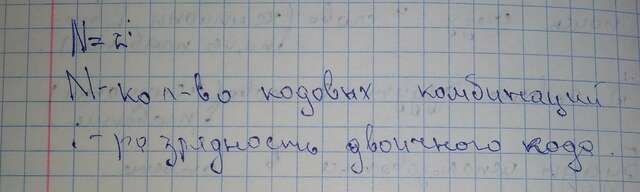 N = 2ⁱ
N - кол-во кодовых комбинаций
i - разрядность двоичного кода.